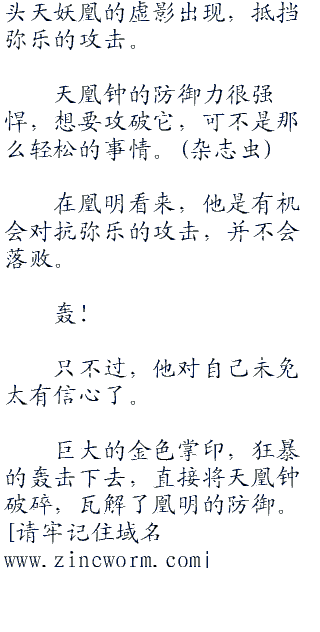 头天妖凰的虚影出现，抵挡
弥乐的攻击。
天凰钟的防御力很强
悍，想要攻破它，可不是那
么轻松的事情。(杂志虫)
在凰明看来，他是有机
会对抗弥乐的攻击，并不会
落败。
轰！
只不过，他对自己未免
太有信心了。
巨大的金色掌印，狂暴
的轰击下去，直接将天凰钟
破碎，瓦解了凰明的防御。
[请牢记住域名
www.zincworm.com|